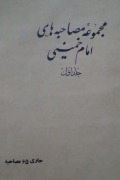 مجموعهٔ مصاحبه‌های
امام خمینی
جلد اول
حاوی ۶۵ مصاحبه